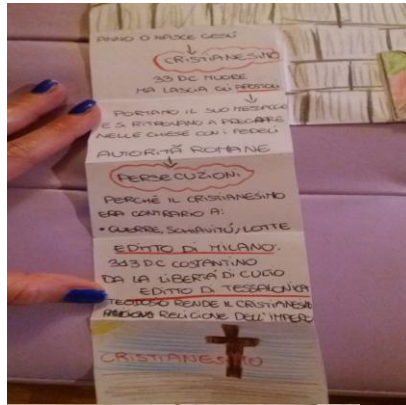 ANNO 0 NASCE GESÙ
CRISTIANESIMO
33 DC MUORE
MA LASCIA GLI APOSTOLI
PORTANO IL SUO MESSAGGIO
E SI RITROVANO A PREGARE
NELLE CHIESE CON I FEDELI
AUTORITÁ ROMANE
PERSECUZIONI
PERCHÉ IL CRISTIANESIMO
ERA CONTRARIO A:
• GUERRE, SCHIAVITÚ/LOTTE
EDITTO DI MILANO:
313 DC COSTANTINO
DA LA LIBERTÁ DI CULTO
EDITTO DI TESSALONICA
TEODOSIO RENDE IL CRISTIANESIMO
RELIGIONE DELL'IMPERO
CRISTIANESIMO